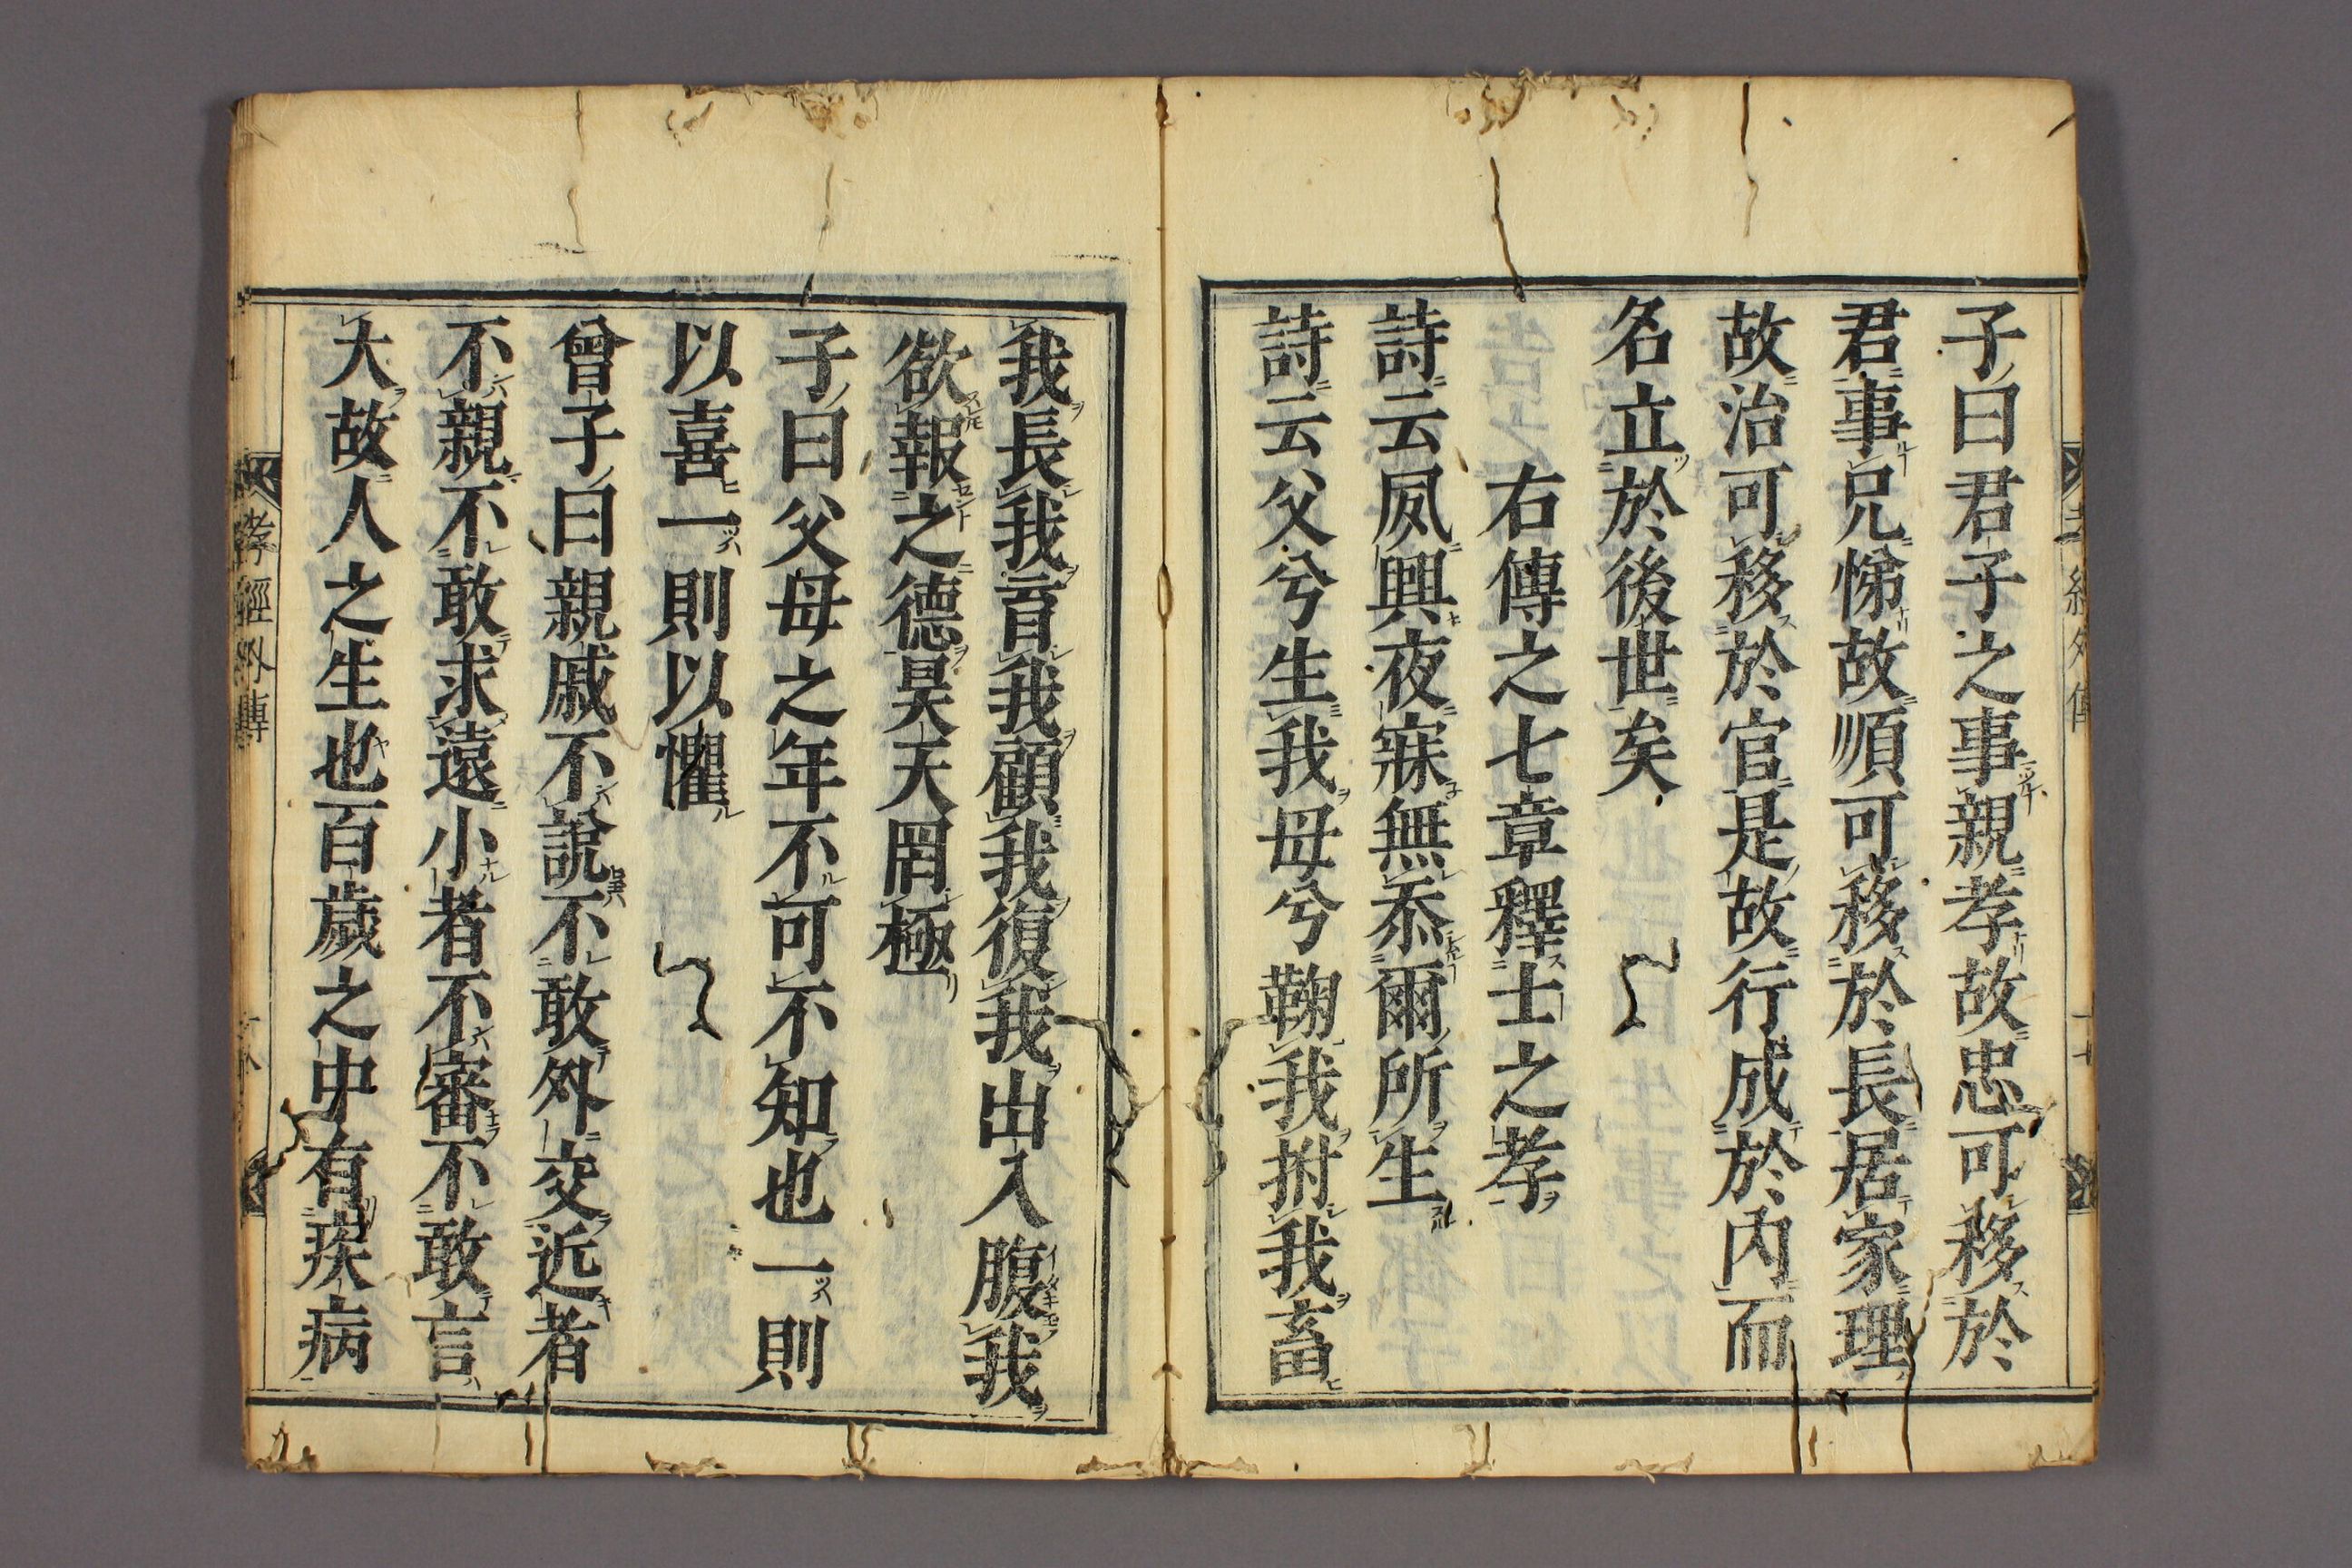 子曰君子之事親孝故忠可移於
君事兄悌故順可移於長居家理
故治可移於官是故行成於内而
名立於後世矣
右傳之七章釋士之孝
詩云夙興夜寐無忝爾所生
詩云父兮生我母兮鞠我拊我畜
我長我育我顧我復我出入腹我
欲報之德昊天罔極
子曰父母之年不可不知也一則
以喜一則以懼
曾子曰親戚不説不敢外交近者
不親不敢求遠小者不審不敢言
大故人之生也百歲之中有疾病
孝經外傳